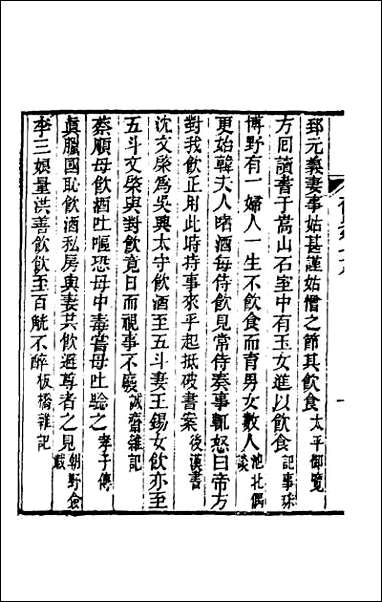 郅元義妻事姑甚謹姑憎之節其飲食太平御覽
方回讀書于嵩山石室中有玉女進以飲食記事珠
博野有一婦人一生不飲食而育男女數人池北偶談
更始韓夫人啫酒每侍飲見常侍奏事輒怒曰帝方
對我飲正用此時持事來乎起抵破書案後漢書
沈文榮爲吳興太守飲酒至五斗妻王錫女飲亦至
五斗文榮與對飲竟日而視事不廢誠齋雜記
蔡順母飲酒吐嘔恐母中毒嘗母吐驗之孝子傳
真臘國恥飲酒私房與妻共飲避尊者之見朝野僉載
李三娘量洪善飲飲至百觥不醉板橋雜記